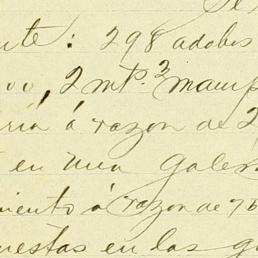 nte: 298 adobes
2 mts.2 mamp
ria á razon de 2
en una galer
miento á razon de 76
uestas en las g